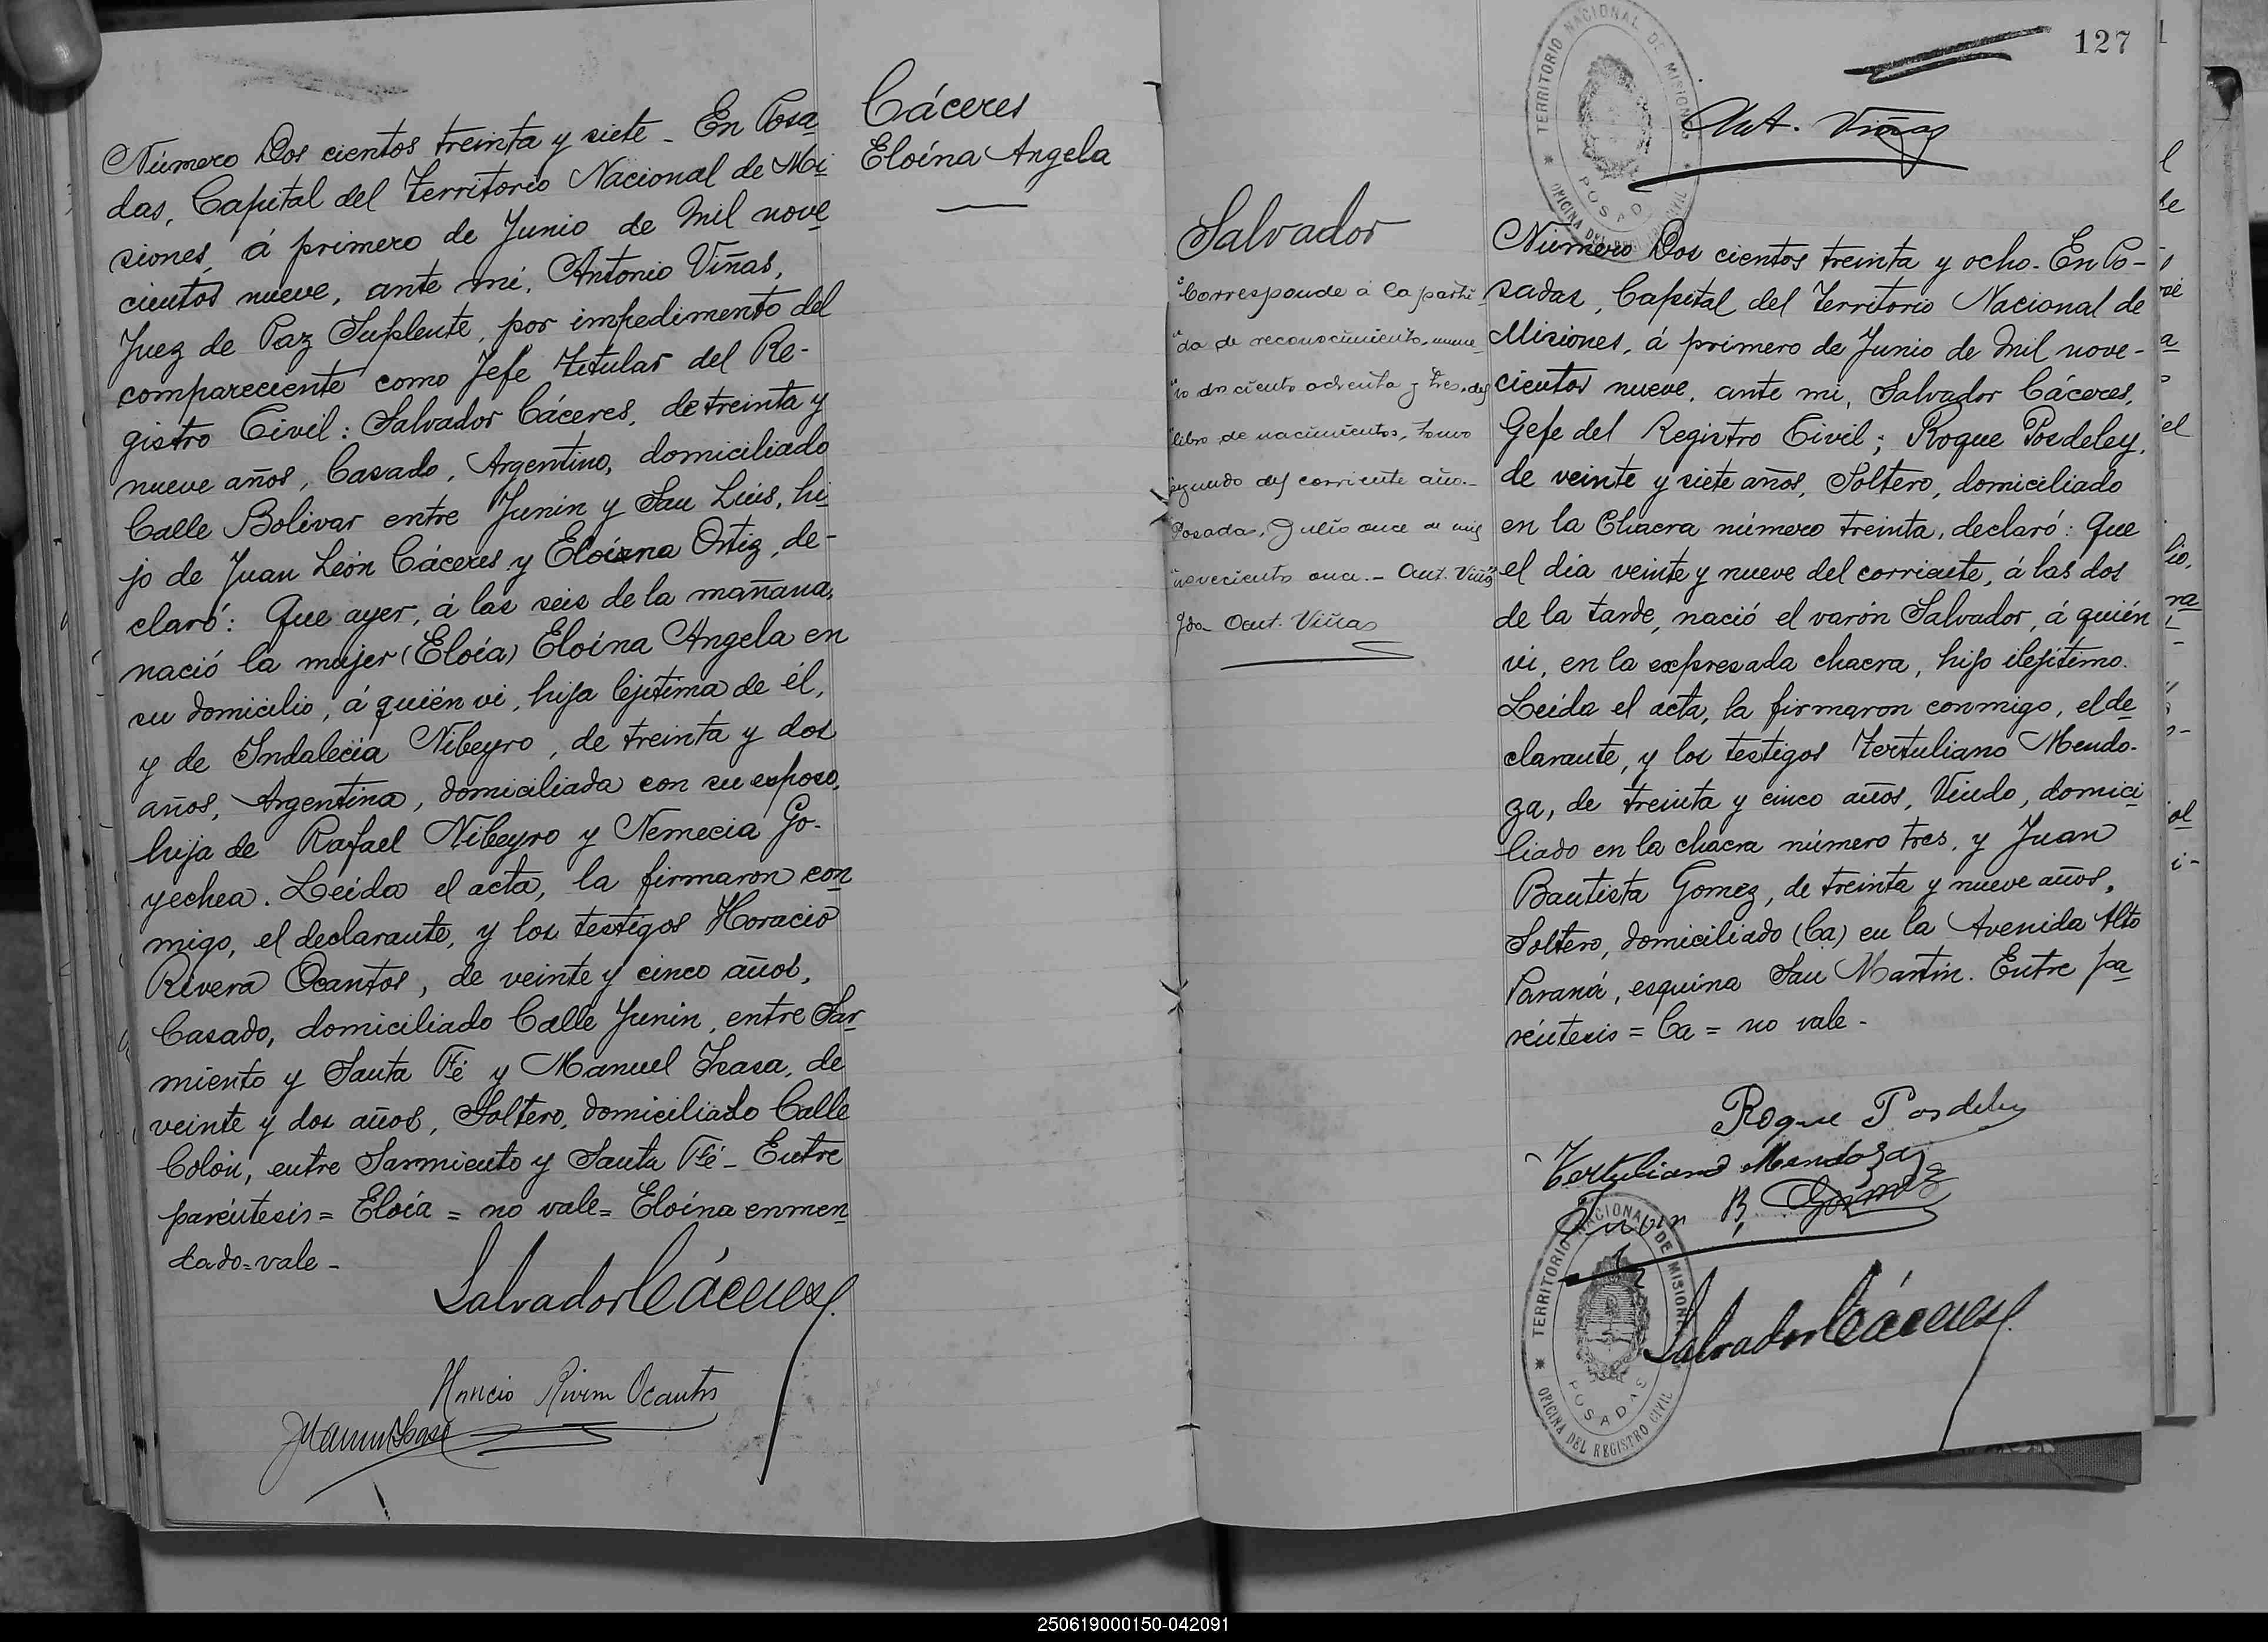 Número Dos cientos treinta y siete - En Posa
das, Capital del Territorio Nacional de Mi
siones, á primero de Junio de Mil nove
cientos nueve, ante mí, Antonio Viñas,
Juez de Paz Suplente, por impedimento del
compareciente como Jefe Titular del Re-
gistro Civil: Salvador Cáceres, de treinta y
nueve años, Casado, Argentino, domiciliado
Calle Bolivar entre Junin y San Luis, hi
jo de Juan León Cáceres y Eloína Ortiz, de-
claró: Que ayer, á las seis de la mañana,
nació la mujer (Eloía) Eloína Angela en
su domicilio, á quién vi, hija lejítima de él,
y de Indalecia Nibeyro, de treinta y dos
años, Argentina, domiciliada con su esposo,
hija de Rafael Nibeyro y Nemecia Go-
yechea. Leída el acta, la firmaron con
migo, el declarante, y los testigos Horacio
Rivera Ocantos, de veinte y cinco años,
Casado, domiciliado Calle Junin, entre Sar
miento y Santa Fé y Manuel Isasa, de
veinte y dos años, Soltero, domiciliado Calle
Colón, entre Sarmiento y Santa Fé - Entre
paréntesis = Eloía = no vale = Eloína enmen
dado = vale -
Salvador Cáceres
Horacio Rivera Ocantos
Manuel Isasa
Cáceres
Eloína Angela
127
TERRITORIO NACIONAL DE MISIONES
POSADAS
OFICINA DEL REGISTRO CIVIL
Ant. Viñas
Salvador
"Corresponde á la parti
"da de reconocimiento, nume
"ro dos cientos ochenta y tres, del
"libro de nacimientos, tomo
segundo del corriente año.-
Posadas, Julio once de mil
"novecientos once. - Ant. Viñas"
Fdo Ant. Viñas
Número Dos cientos treinta y ocho. En Po-
sadas, Capital del Territorio Nacional de
Misiones, á primero de Junio de Mil nove-
cientos nueve, ante mi, Salvador Cáceres,
Gefe del Registro Civil; Roque Posdeley,
de veinte y siete años, Soltero, domiciliado
en la Chacra número treinta, declaró: Que
el día veinte y nueve del corriente, á las dos
de la tarde, nació el varón Salvador, á quién
vi, en la expresada chacra, hijo ilejítimo.
Leída el acta, la firmaron conmigo, el de
clarante, y los testigos Tertuliano Mendo-
za, de treinta y cinco años, Viudo, domici
liado en la chacra número tres, y Juan
Bautista Gomez, de treinta y nueve años,
Soltero, domiciliado (Ca) en la Avenida Alto
Paraná, esquina San Martin. Entre pa
réntesis = Ca = no vale -
Roque Posdeley
Tertuliano Mendoza
Juan B. Gómez
TERRITORIO NACIONAL DE MISIONES
POSADAS
OFICINA DEL REGISTRO CIVIL
Salvador Cáceres
250619000150-042091